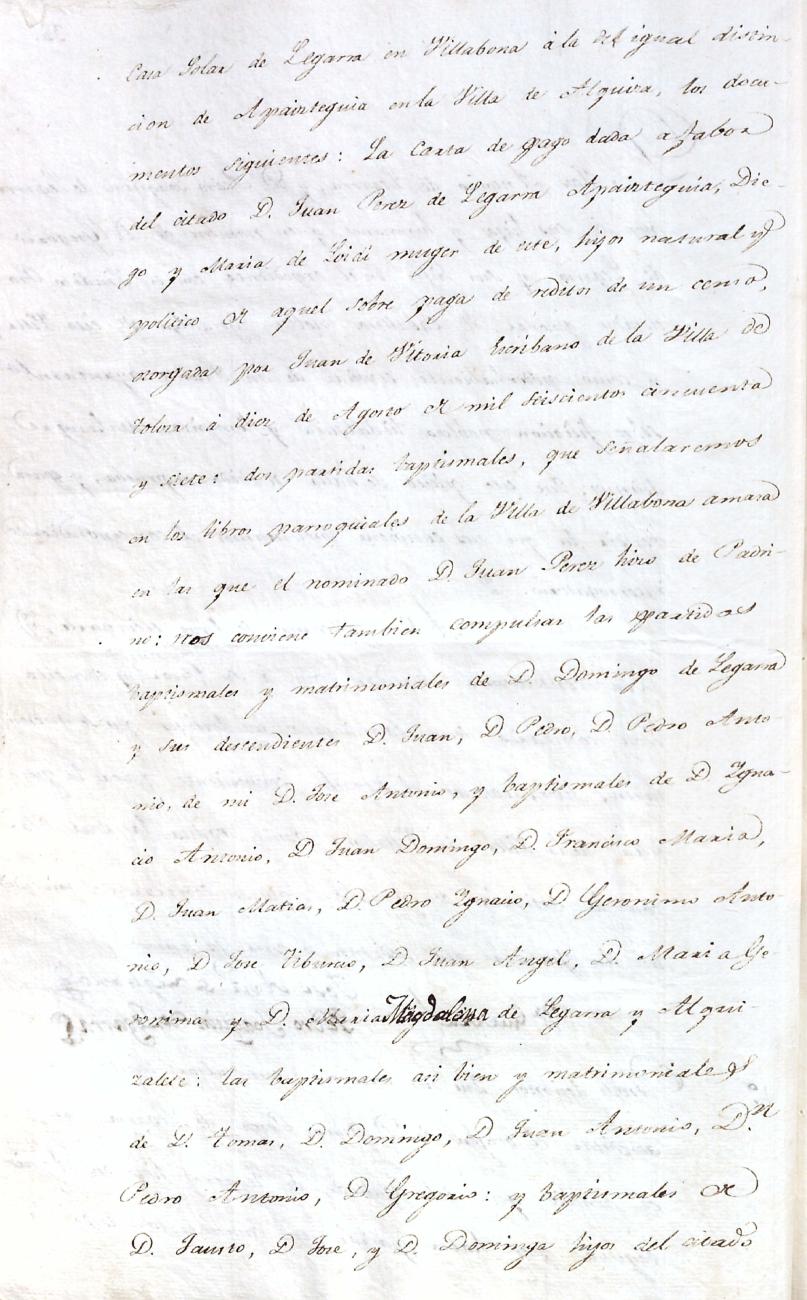 Casa Solar de Legarra en Villabona á la del igual distin-
cion de Apaizteguia en la Villa de Alquiza, los docu-
mentos siguientes: La carta de pago dada a fabor
del citado D. Juan Perez de Legarra Apaizteguia, Die-
go y Maria de Loidi muger de este, hijos natural y
politico de aquel sobre paga de reditos de un censo,
otorgada por Juan de Vitoria Escribano de la Villa de
Tolosa á diez de Agosto de mil seiscientos cincuenta
y siete: dos partidas baptismales, que señalaremos
en los libros parroquiales de la Villa de Villabona amasa
en las que el nominado D. Juan Perez hizo de Padri-
no: nos conviene tambien compulsar las partidas
baptismales y matrimoniales de D. Domingo de Legarra
y sus descendientes D. Juan, D Pedro, D. Pedro Anto-
nio, de mi D. Jose Antonio, y baptismales de D Ygna-
cio Antonio, D Juan Domingo, D. Francisco Maria,
D. Juan Matias, D. Pedro Ygnacio, D Geronimo Anto-
nio, D Jose Tiburcio, D Juan Angel, D. Maria Ge-
ronima y D. Maria Magdalena de Legarra y Alqui-
zalete: las baptismales asi bien y matrimoniales
de D. Tomas, D. Domingo, D Juan Antonio, D.n
Pedro Antonio, D Gregorio: y baptismales de
D. Fausto, D Jose, y D. Dominga hijos del citado